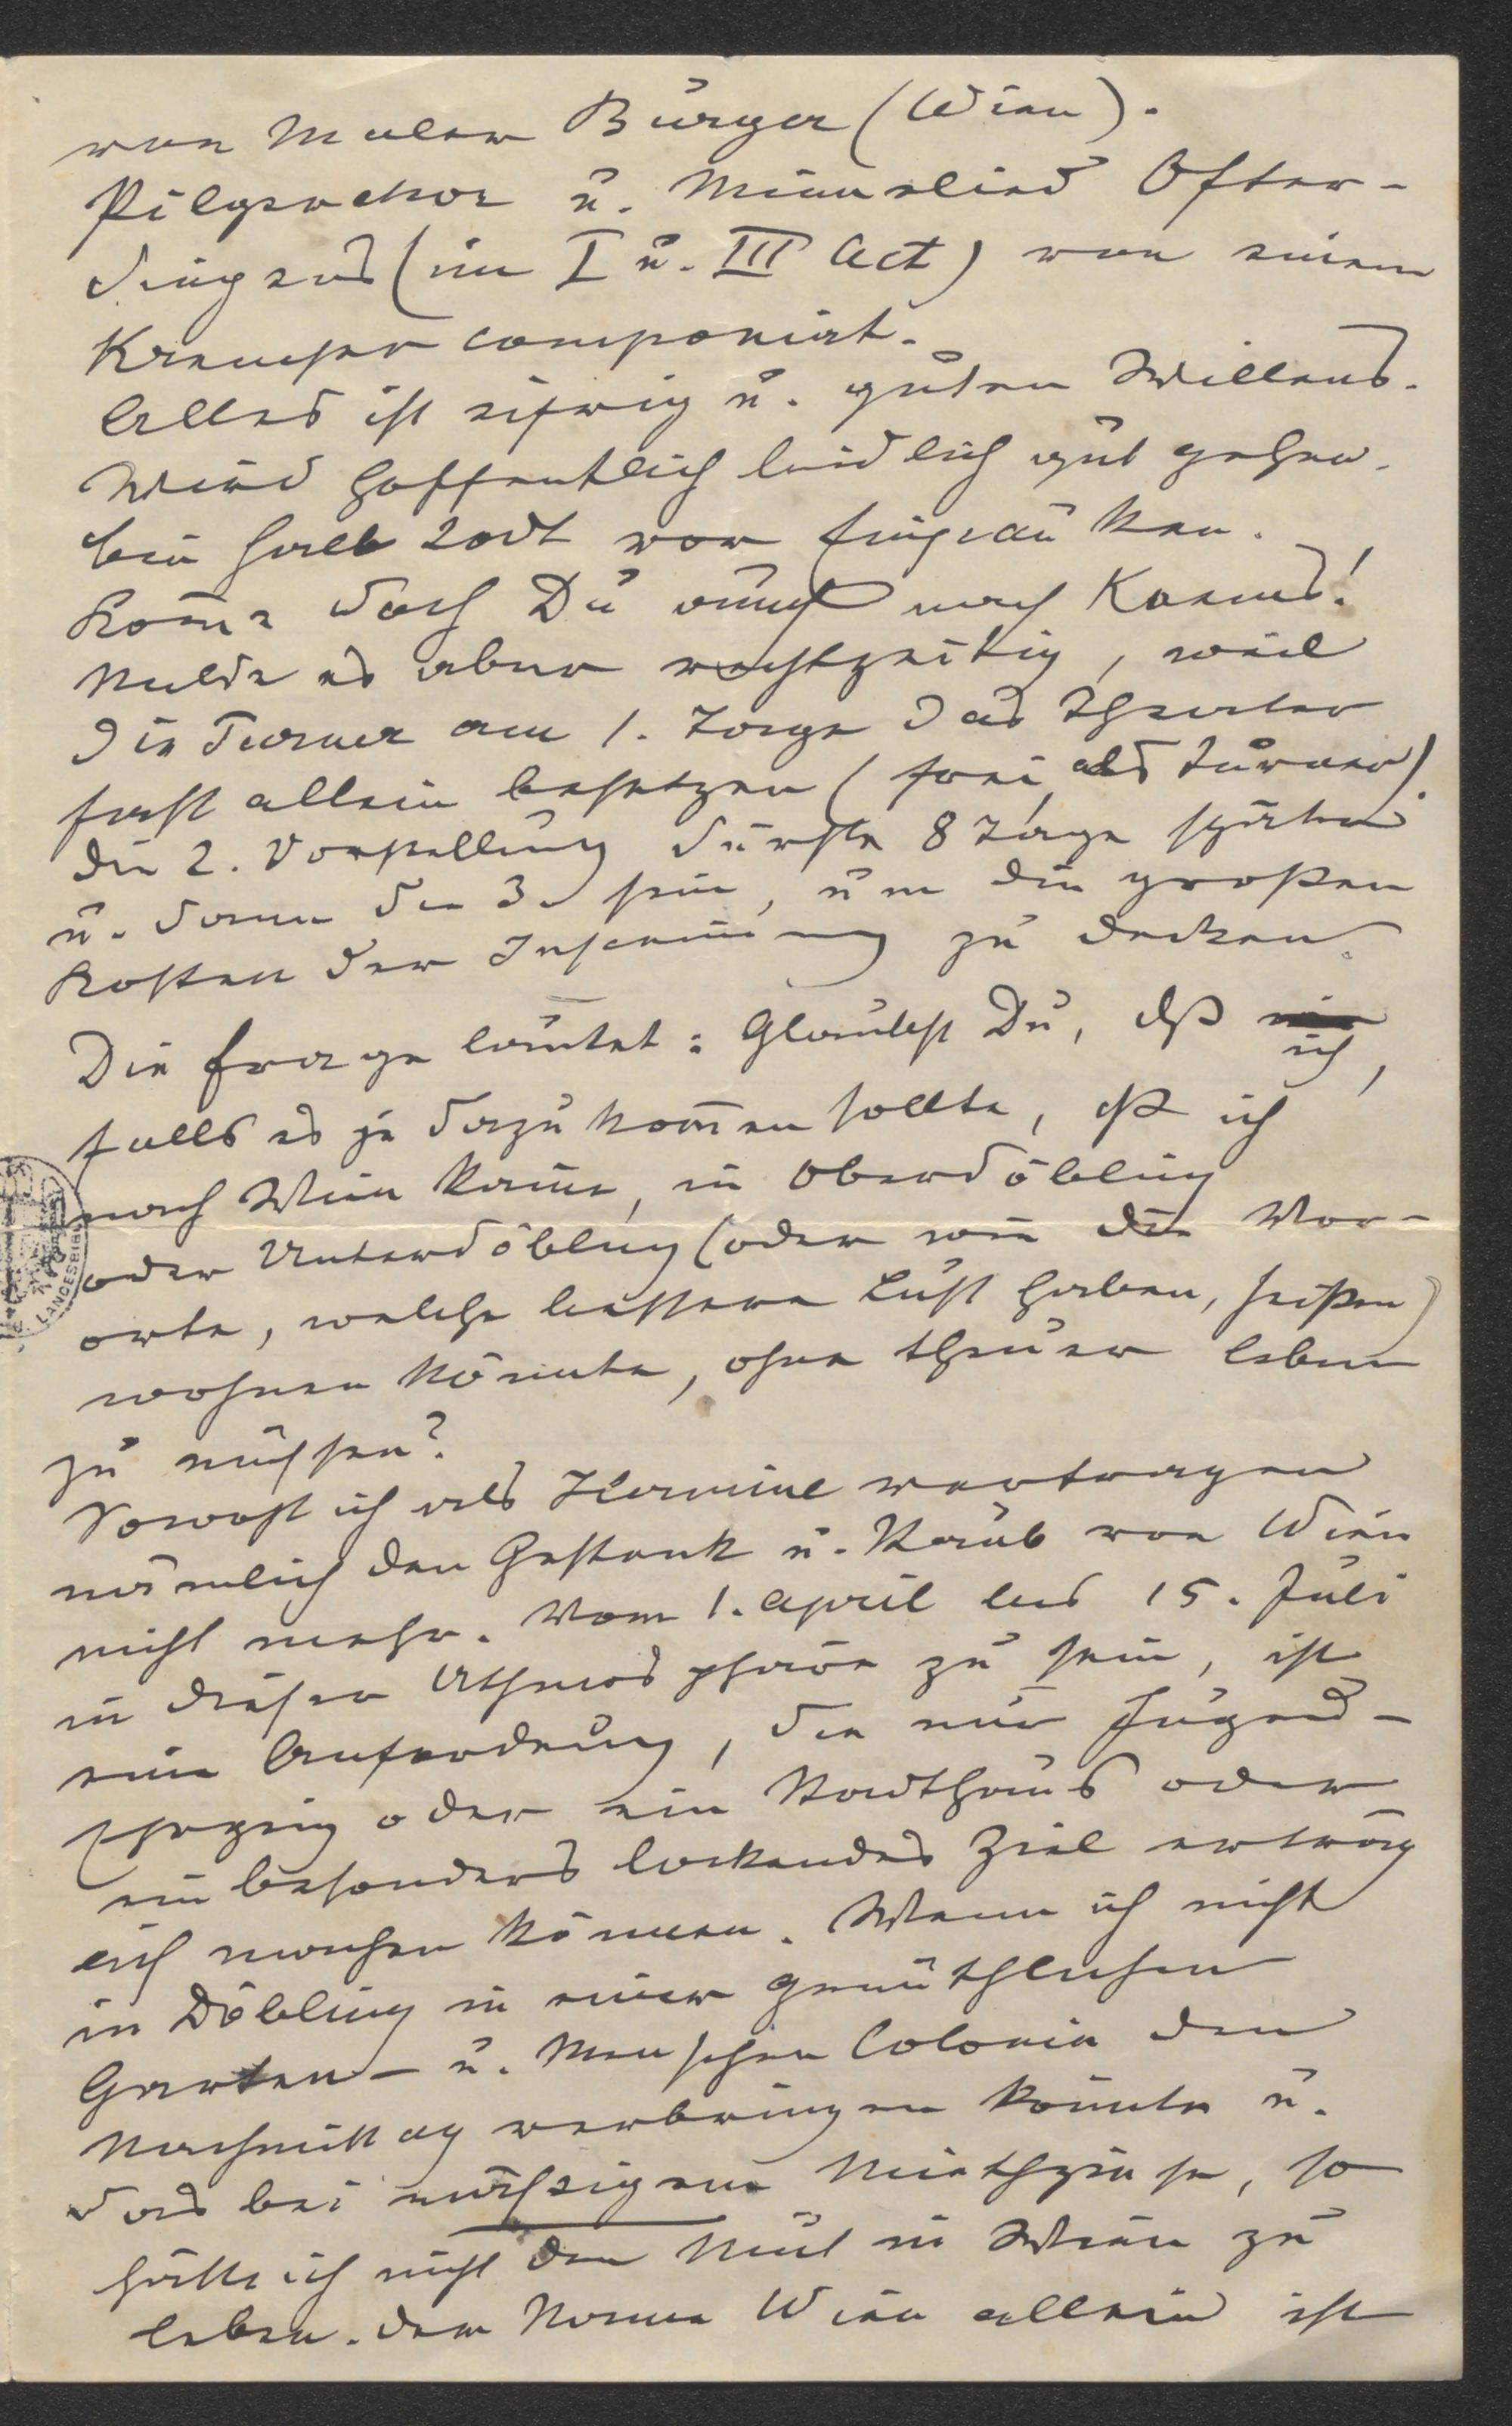 von Maler Bürger (Wien).
Pilgerchor u. Minnelied Ofter-
dingens (im I u. III Act) von einem
Kremser componirt.
Alles ist eifrig u. guten Willens.
Wird hoffentlich leidlich gut gehen.
bin halb todt vor
Kom̅e doch Du auch nach Krems!
Melde es aber rechtzeitig, weil
die Turner am 1. Tage das Theater
fast allein besetzen (frei als Turner)
die 2. Vorstellung dürfte 8 Tage später
u. dann die 3. sein, um die großen
Kosten der Inscenirung zu decken.
Die Frage lautet: Glaubst Du, dß
ich,
falls es je dazu kom̅en sollte, dß ich
nach Wien käme, in Oberdöbling
oder Unterdöbling (oder wie die Vor-
orte, welche bessere Luft haben, heißen)
wohnen könnte, ohne theuer leben
zu müssen?
Sowohl ich als Hermine vertragen
nämlich den Gestank u. Staub von Wien
nicht mehr. Vom 1. April bis 15. Juli
in dieser Athmosphäre zu sein, ist
eine Anfordrung, die nur Jugend-
oder ein Stadthaus oder
ein besonders lockendes Ziel erträg
lich machen können. Wenn ich nicht
in Döbling in einer gemüthlichen
Garten- u. Menschen Colonie den
Nachmittag verbringen könnte u.
das bei mässigem Miethzinse, so
hätte ich nicht den Mut in Wien zu
leben. Der Name Wien allein ist
LANDESBIBL